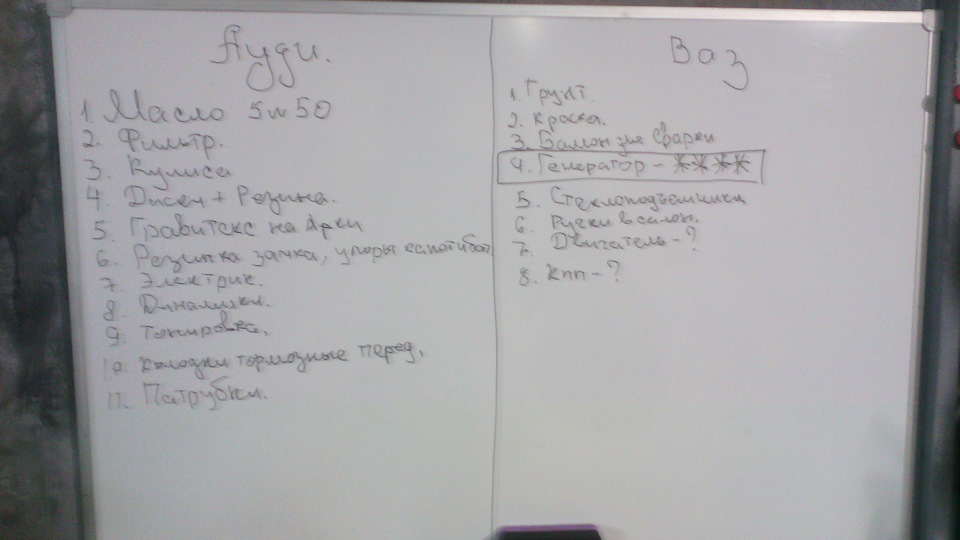 Ауди.
1. Масло 5w50
2. Фильтр.
3. Кулиса
4. Диски + Резина.
5. Гравитекс на Арки
6. Резинка замка, упоры капот
7. Электрик.
8. Динамики.
9. Тонировка,
10. Колодки тормозные перед,
11. Патрубки.
Ваз
1. Грунт.
2. Краска.
3. Балон для Сварки
4. Генератор - ****
5. Стеклоподъемники
6. Ручки в салон.
7. Двигатель - ?
8. кпп - ?